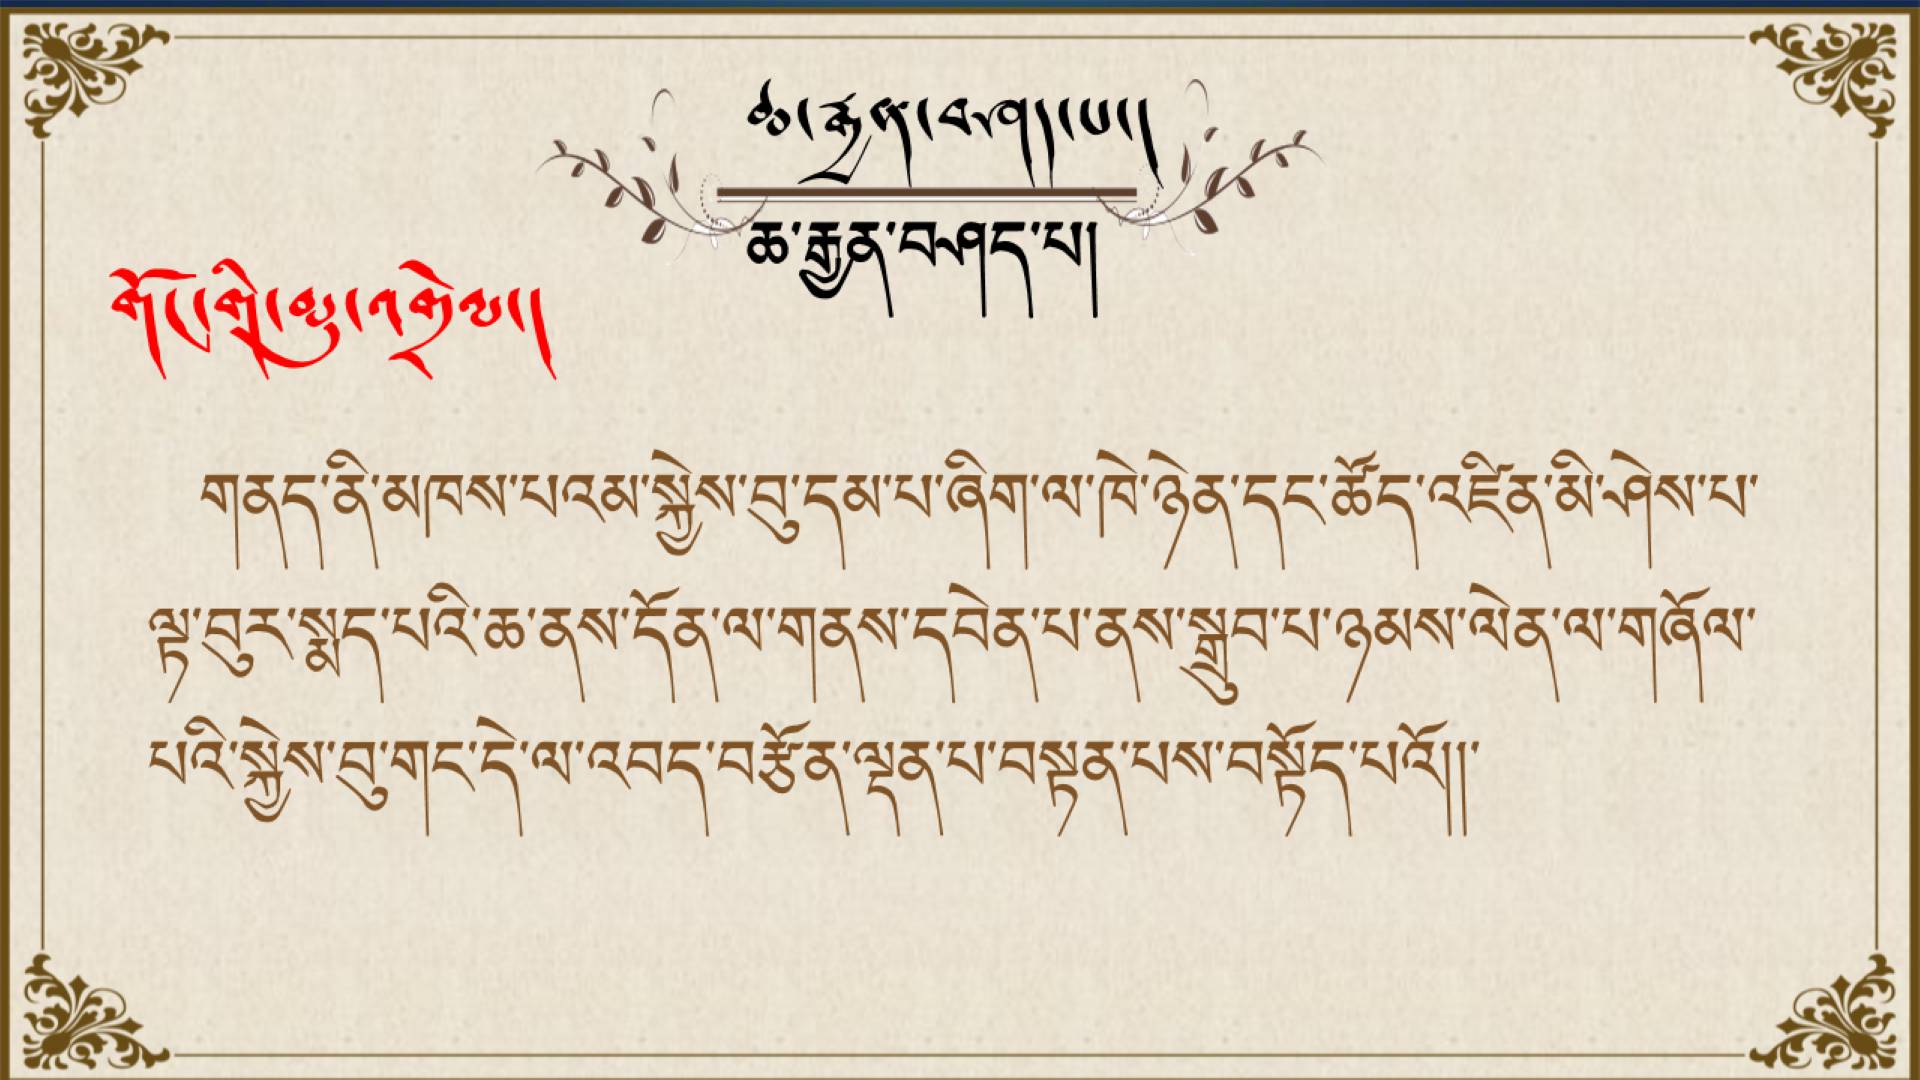 ཆ་རྒྱན་བཤད་པ།
ཆ་རྒྱན་བཤད་པ།
གོང་གི་ལྟ་འགྲེལ།
གནད་ནི་མཁས་པའམ་སྐྱེས་བུ་དམ་པ་ཞིག་ལ་ཁེ་ཉེན་དང་ཚོད་འཛིན་མི་ཤེས་པ་
ལྟ་བུར་སྨད་པའི་ཆ་ནས་དོན་ལ་གནས་དབེན་པ་ནས་སྒྲུབ་པ་ཉམས་ལེན་ལ་གཞོལ་
པའི་སྐྱེས་བུ་གང་དེ་ལ་འབད་བརྩོན་ལྡན་པ་བསྟན་པས་བསྟོད་པའོ།།